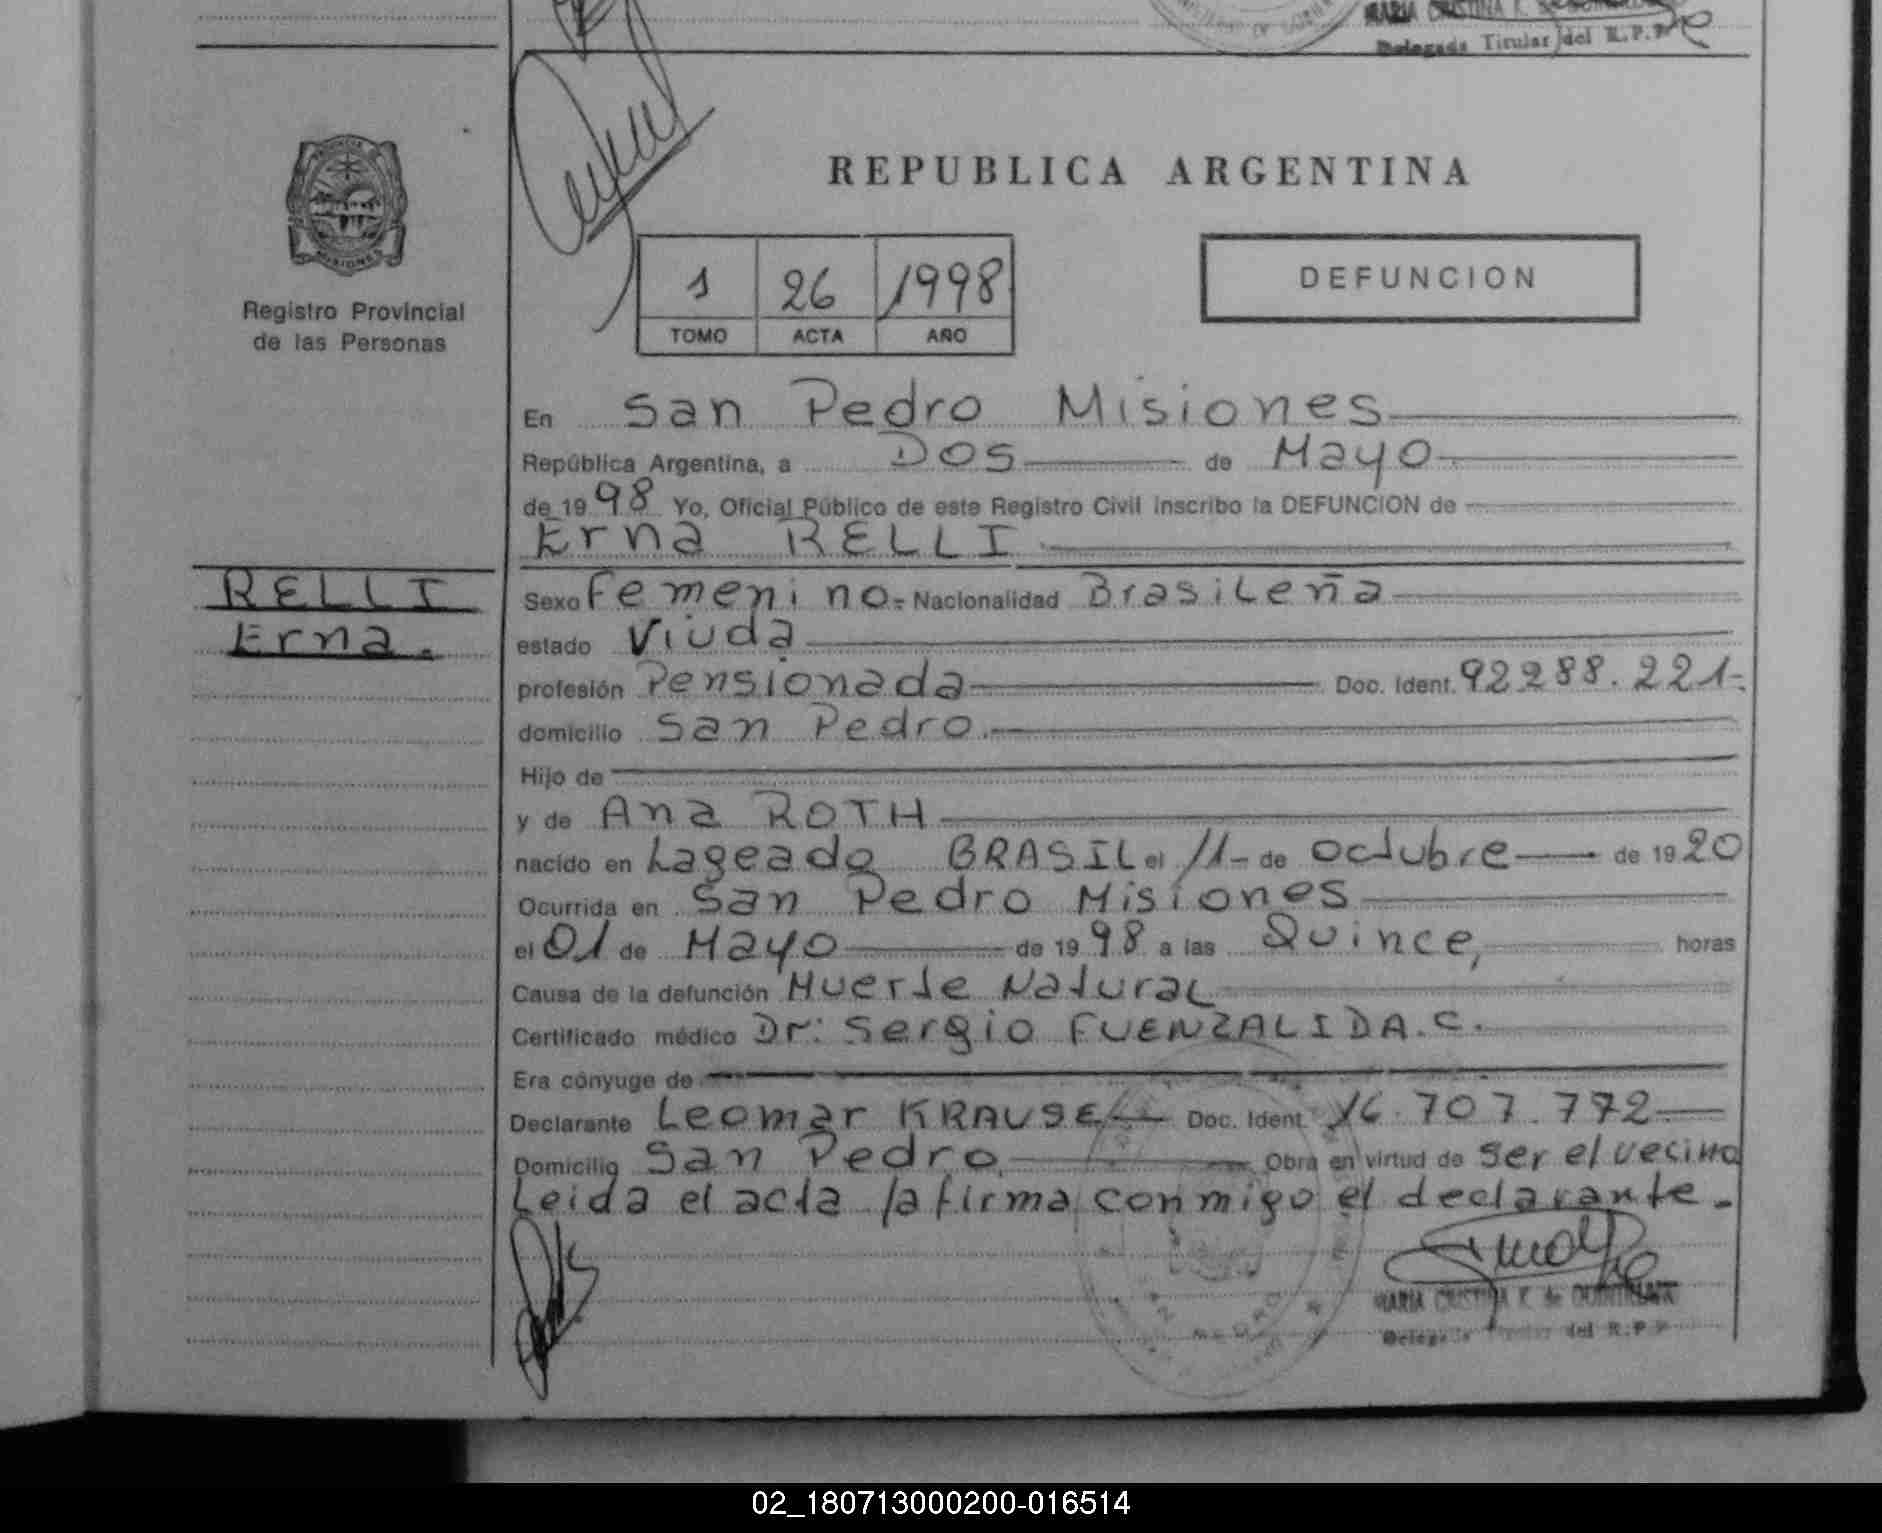 MARIA CRISTINA K. de
Delegada Titular del R.P.P.
PROVINCIA
MISIONES
Registro Provincial
de las Personas
REPUBLICA ARGENTINA
1 26 1998
TOMO ACTA AÑO
DEFUNCION
En San Pedro Misiones
República Argentina, a DOS de Mayo
de 1998 Yo, Oficial Público de este Registro Civil inscribo la DEFUNCION de
Erna RELLI
RELLI
Erna.
Sexo Femenino.= Nacionalidad Brasileña
estado Viuda
profesión Pensionada Doc. Ident. 92288.221-
domicilio San Pedro.
Hijo de
y de Ana ROTH
nacido en Lageado BRASIL el 11- de octubre de 1920
Ocurrida en San Pedro Misiones
el 01 de Mayo de 1998 a las Quince, horas
Causa de la defunción Muerte Natural
Certificado médico Dr: Sergio FUENZALIDA.C.
Era cónyuge de
Declarante Leomar KRAUSE Doc. Ident. 16.707.772
Domicilio San Pedro. Obra en virtud de ser el vecino
Leida el acta la firma conmigo el declarante.-
SAN PEDRO
MARIA CRISTINA K. de
Delegada Titular del R.P.P.
02_180713000200-016514